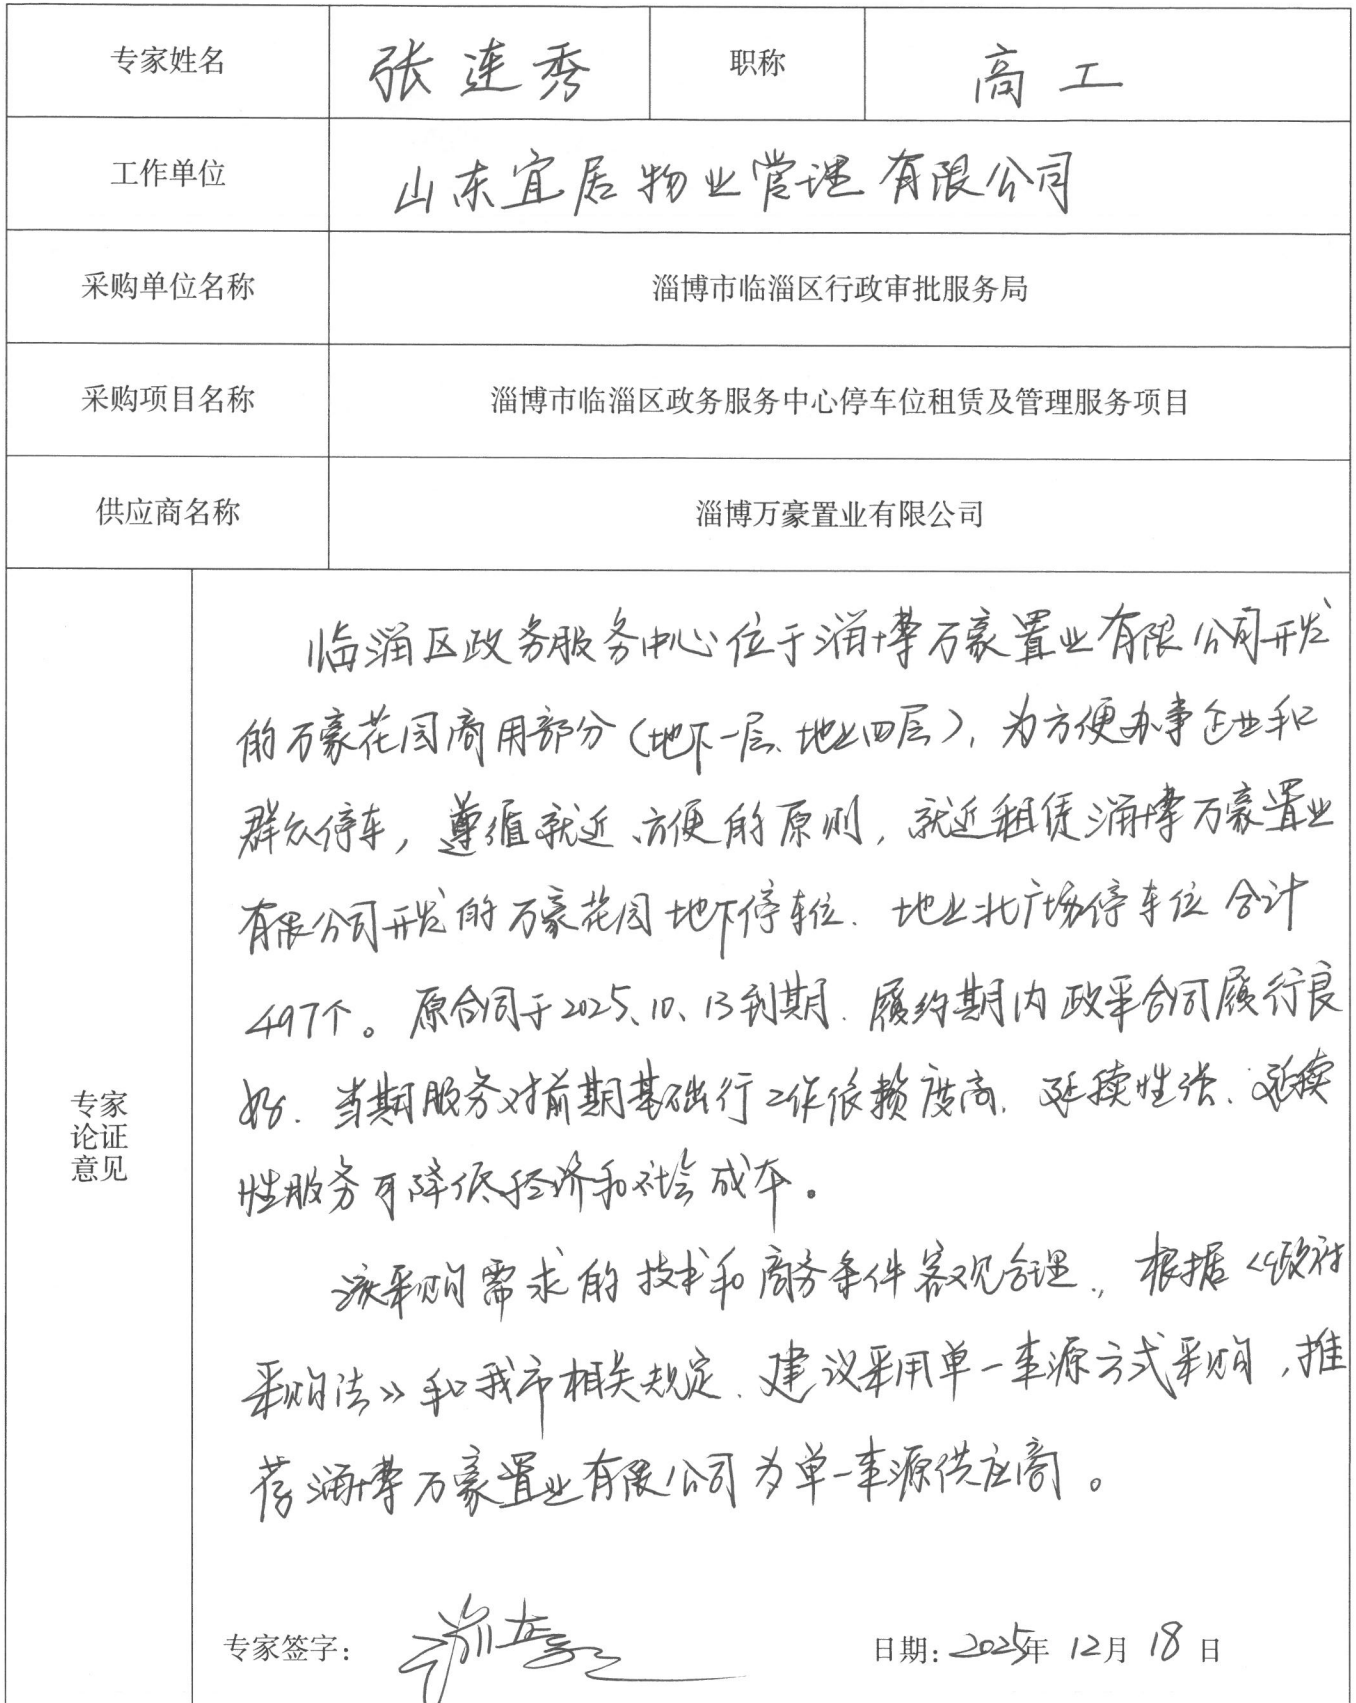 专家姓名 张连秀 职称 高工
工作单位 山东宜居物业管理有限公司
采购单位名称 淄博市临淄区行政审批服务局
采购项目名称 淄博市临淄区政务服务中心停车位租赁及管理服务项目
供应商名称 淄博万豪置业有限公司
专家
论证
意见
临淄区政务服务中心位于淄博万豪置业有限公司开发
的万豪花园商用部分(地下一层、地上四层),为方便办事企业和
群众停车,遵循就近、方便的原则,就近租赁淄博万豪置业
有限公司开发的万豪花园地下停车位、地上北广场停车位合计
497个。原合同于2025、10、13到期、履约期内政采合同履行良
好、当期服务对前期基础行工作依赖度高、延续性强、延续
性服务可降低经济和社会成本。
该采购需求的技术和商务条件客观合理,根据《政府
采购法》和我市相关规定、建议采用单一来源方式采购,推
荐淄博万豪置业有限公司为单一来源供应商。
专家签字: 日期:2025年12月18日